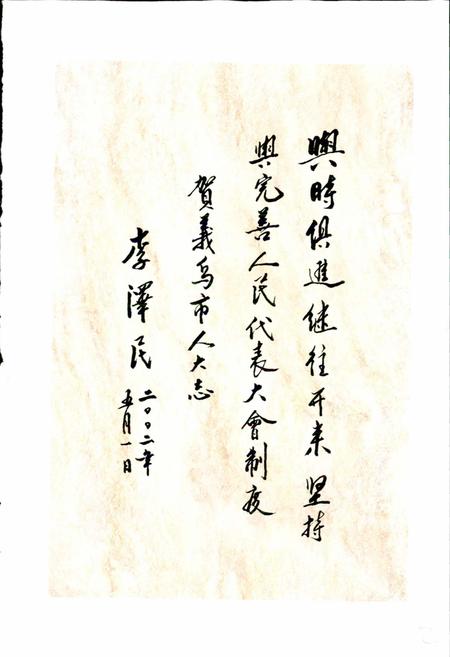 與時俱進继往开来坚持
與完善人民代表大會制度
賀義烏市人大志
李澤民
二〇〇二年
五月一日